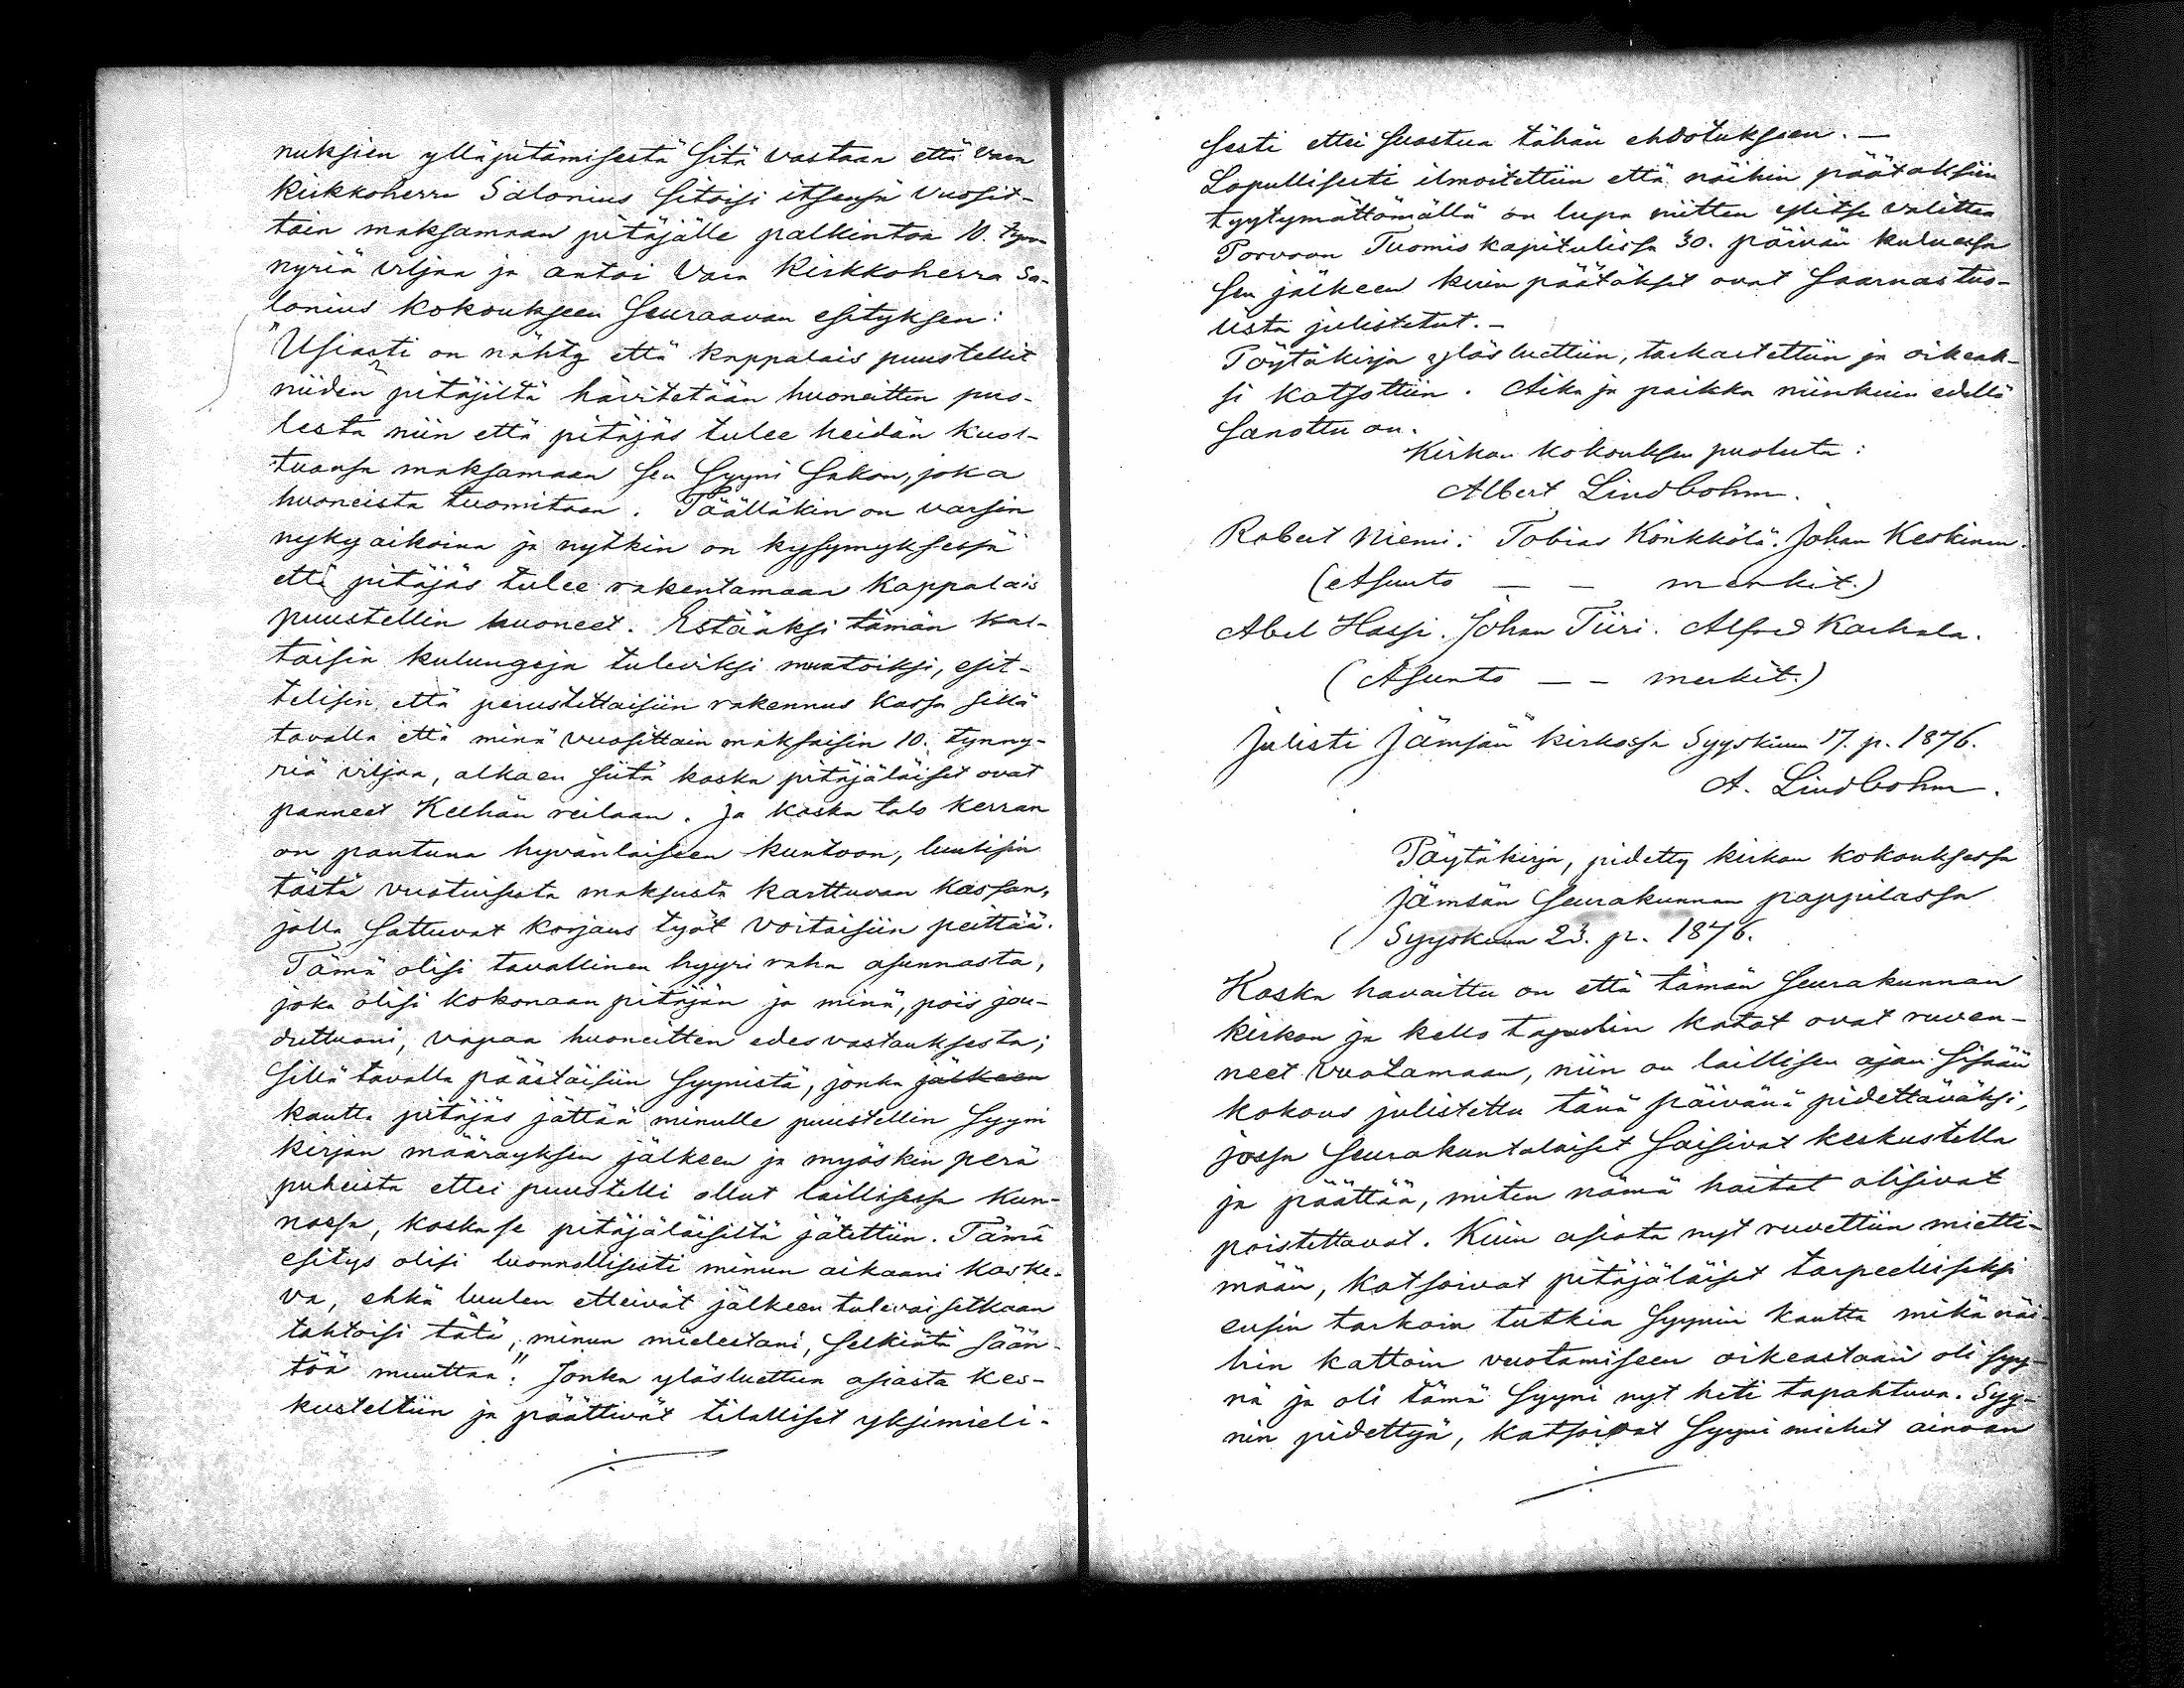 nuksien ylläpitämisestä sitä vastaan että vara
kirkkoherra Salonius sitoisi itsensä vuosit-
tain maksamaan pitäjälle palkintoa 10. tyn-
nyriä viljaa ja antoi vara Kirkkoherra Sa-
lonius kokoukseen seuraavan esityksen:
"Usiasti on nähty että kappalais puustellit
niiden pitäjiltä hävitetään huoneitten puo-
lesta niin että pitäjäs tulee heidän kuol-
tuansa maksamaan sen syyni sakon, joka
huoneista tuomitaan. Täälläkin on varsin
nykyaikoina ja nytkin on kysymyksessä
että pitäjäs tulee rakentamaan Kappalais
puustellin huoneet. Estääksi tämän kal-
taisia kulungeja tuleviksi muatoiksi, esit-
telisin että perustettaisiin rakennus kassa sillä
tavalla että minä vuosittain maksaisin 10. tynny-
riä viljaa, alkaen siitä koska pitäjäläiset ovat
panneet Keehän reilaan. Ja koska talo kerran
on pantuna hyvänlaiseen kuntoon, luulisin
tästä vuotuisesta maksusta karttuvan kassan,
jolla sattuvat korjaus työt voitaisiin peittää.
Tämä olisi tavallinen hyyri raha asunnosta,
joka olisi kokonaan pitäjän ja minä, pois jou-
duttuani, vapaa huoneitten edesvastauksesta;
sillä tavalla päästäisiin syynistä, jonka jälkeen
kautta pitäjäs jättää minulle puustellin syyni
kirjan määräyksen jälkeen ja myöskin perä
puheista ettei puustelli ollut laillisessa kun-
nossa, koska se pitäjäläisiltä jätettiin. Tämä
esitys olisi luonnollisesti minun aikaani koske-
va, ehkä luulen etteivät jälkeen tulevaisetkaan
tahtoisi tätä, minun mielestäni, selkiätä sään-
töä muuttaa." Jonka ylösluettua asiasta kes-
kusteltiin ja päättivät tilalliset yksimieli-
sesti ettei suostua tähän ehdotukseen. —
Lopullisesti ilmoitettiin että näihin päätöksiin
tyytymättömällä on lupa niitten ylitse valittaa
Porvoon Tuomiokapitulissa 30. päivän kuluessa
sen jälkeen kuin päätökset ovat saarnastuo-
lista julistetut. —
Pöytäkirja ylösluettiin, tarkastettiin ja oikeak-
si katsottiin. Aika ja paikka niinkuin edellä
sanottu on.
Kirkon kokouksen puolesta:
Albert Lindbohm.
Robert Niemi. Tobias Könkkölä. Johan Keskinen.
(Asunto — — merkit.)
Abel Hassi. Johan Tiiri. Alfred Kaihala.
(Asunto — — merkit.)
Julisti Jämsän kirkossa Syyskuun 17. p. 1876.
A. Lindbohm.
Pöytäkirja, pidetty kirkon kokouksessa
Jämsän seurakunnan pappilassa
Syyskuun 23. p. 1876.
Koska havaittu on että tämän seurakunnan
kirkon ja kello tapulin katot ovat ruven-
neet vuotamaan, niin on laillisen ajan sisään
kokous julistettu tänä päivänä pidettäväksi,
jossa seurakuntalaiset saisivat keskustella
ja päättää, miten nämä haitat olisivat
poistettavat. Kuin asiata nyt ruvettiin mietti-
mään, katsoivat pitäjäläiset tarpeelliseksi
ensin tarkoin tutkia syynin kautta mikä näi-
hin kattoin vuotamiseen oikeastaan oli syy-
nä ja oli tämä syyni nyt heti tapahtuva. Syy-
nin pidettyä, katsoivat syyni miehet ainoan